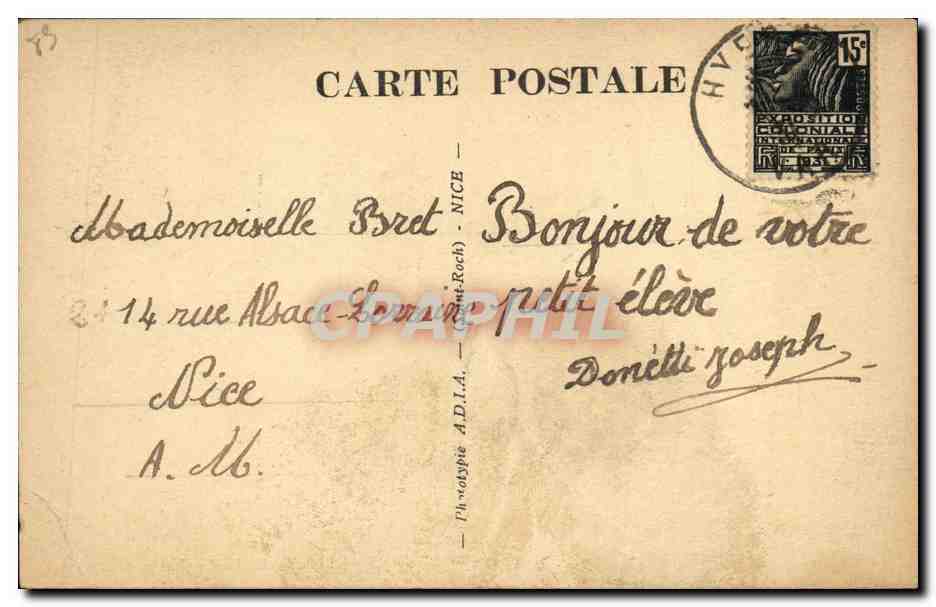 CARTE POSTALE
15c
EXPOSITION
COLONIALE
INTERNATIONALE
DE PARIS
1931
HYE
VAR
Mademoiselle Bret
14 rue Alsace-Lorraine
Nice
A. M.
— Phototypie A.D.I.A. — (Saint-Roch) - NICE —
Bonjour de votre
petit élève
Donétti Joseph
CPAPHIL
89